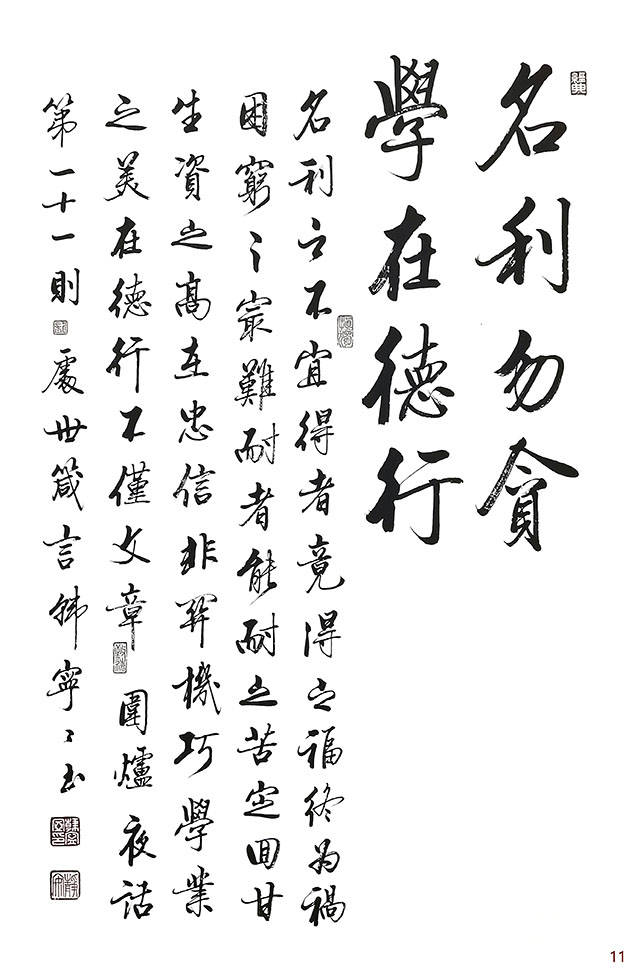 名利勿貪
學在德行
名利之不宜得者竟得之福終為禍
困窮之最難耐者能耐之苦定回甘
生資之高在忠信非關機巧學業
之美在德行不僅文章 圍爐夜話
第一十一則 處世箴言韩寧〻书
11